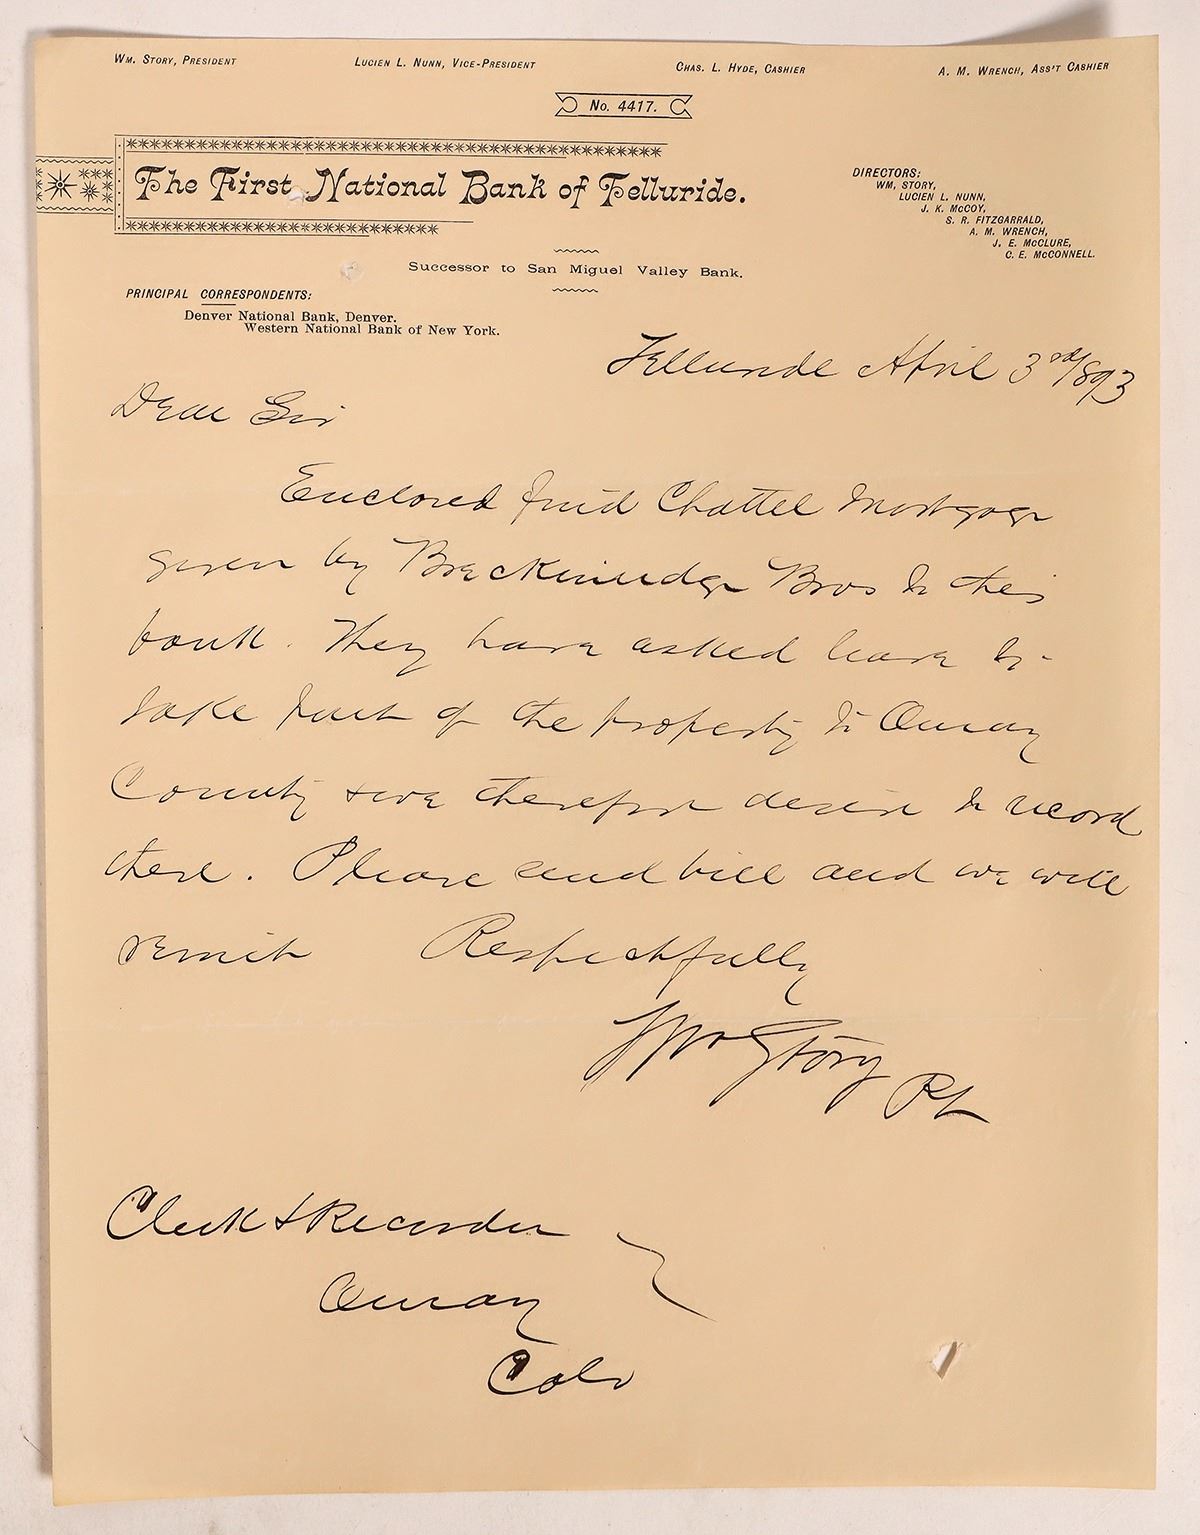 WM. STORY, PRESIDENT LUCIEN L. NUNN, VICE-PRESIDENT CHAS. L. HYDE, CASHIER A. M. WRENCH, ASS'T CASHIER
No. 4417.
The First National Bank of Telluride.
DIRECTORS:
WM, STORY,
LUCIEN L. NUNN,
J. K. McCOY,
S. R. FITZGARRALD,
A. M. WRENCH,
J. E. McCLURE,
C. E. McCONNELL.
Successor to San Miguel Valley Bank.
PRINCIPAL CORRESPONDENTS:
Denver National Bank, Denver.
Western National Bank of New York.
Telluride April 3rd/893
Dear Sir
Enclosed find Chattel Mortgage
given by Breckinridge Bros to this
bank. They have asked leave to
take part of the property to Ouray
County & we therefore desire to record
there. Please send bill and we will
remit Respectfully
Wm Story Pt
Clerk & Recorder
Ouray
Colo